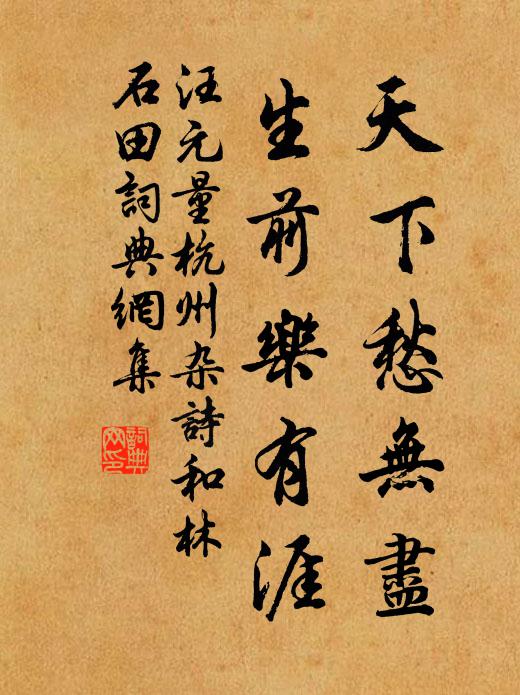 天下愁無盡
生前樂有涯
汪元量杭州杂詩和林
石田詞典網集
詞典网印